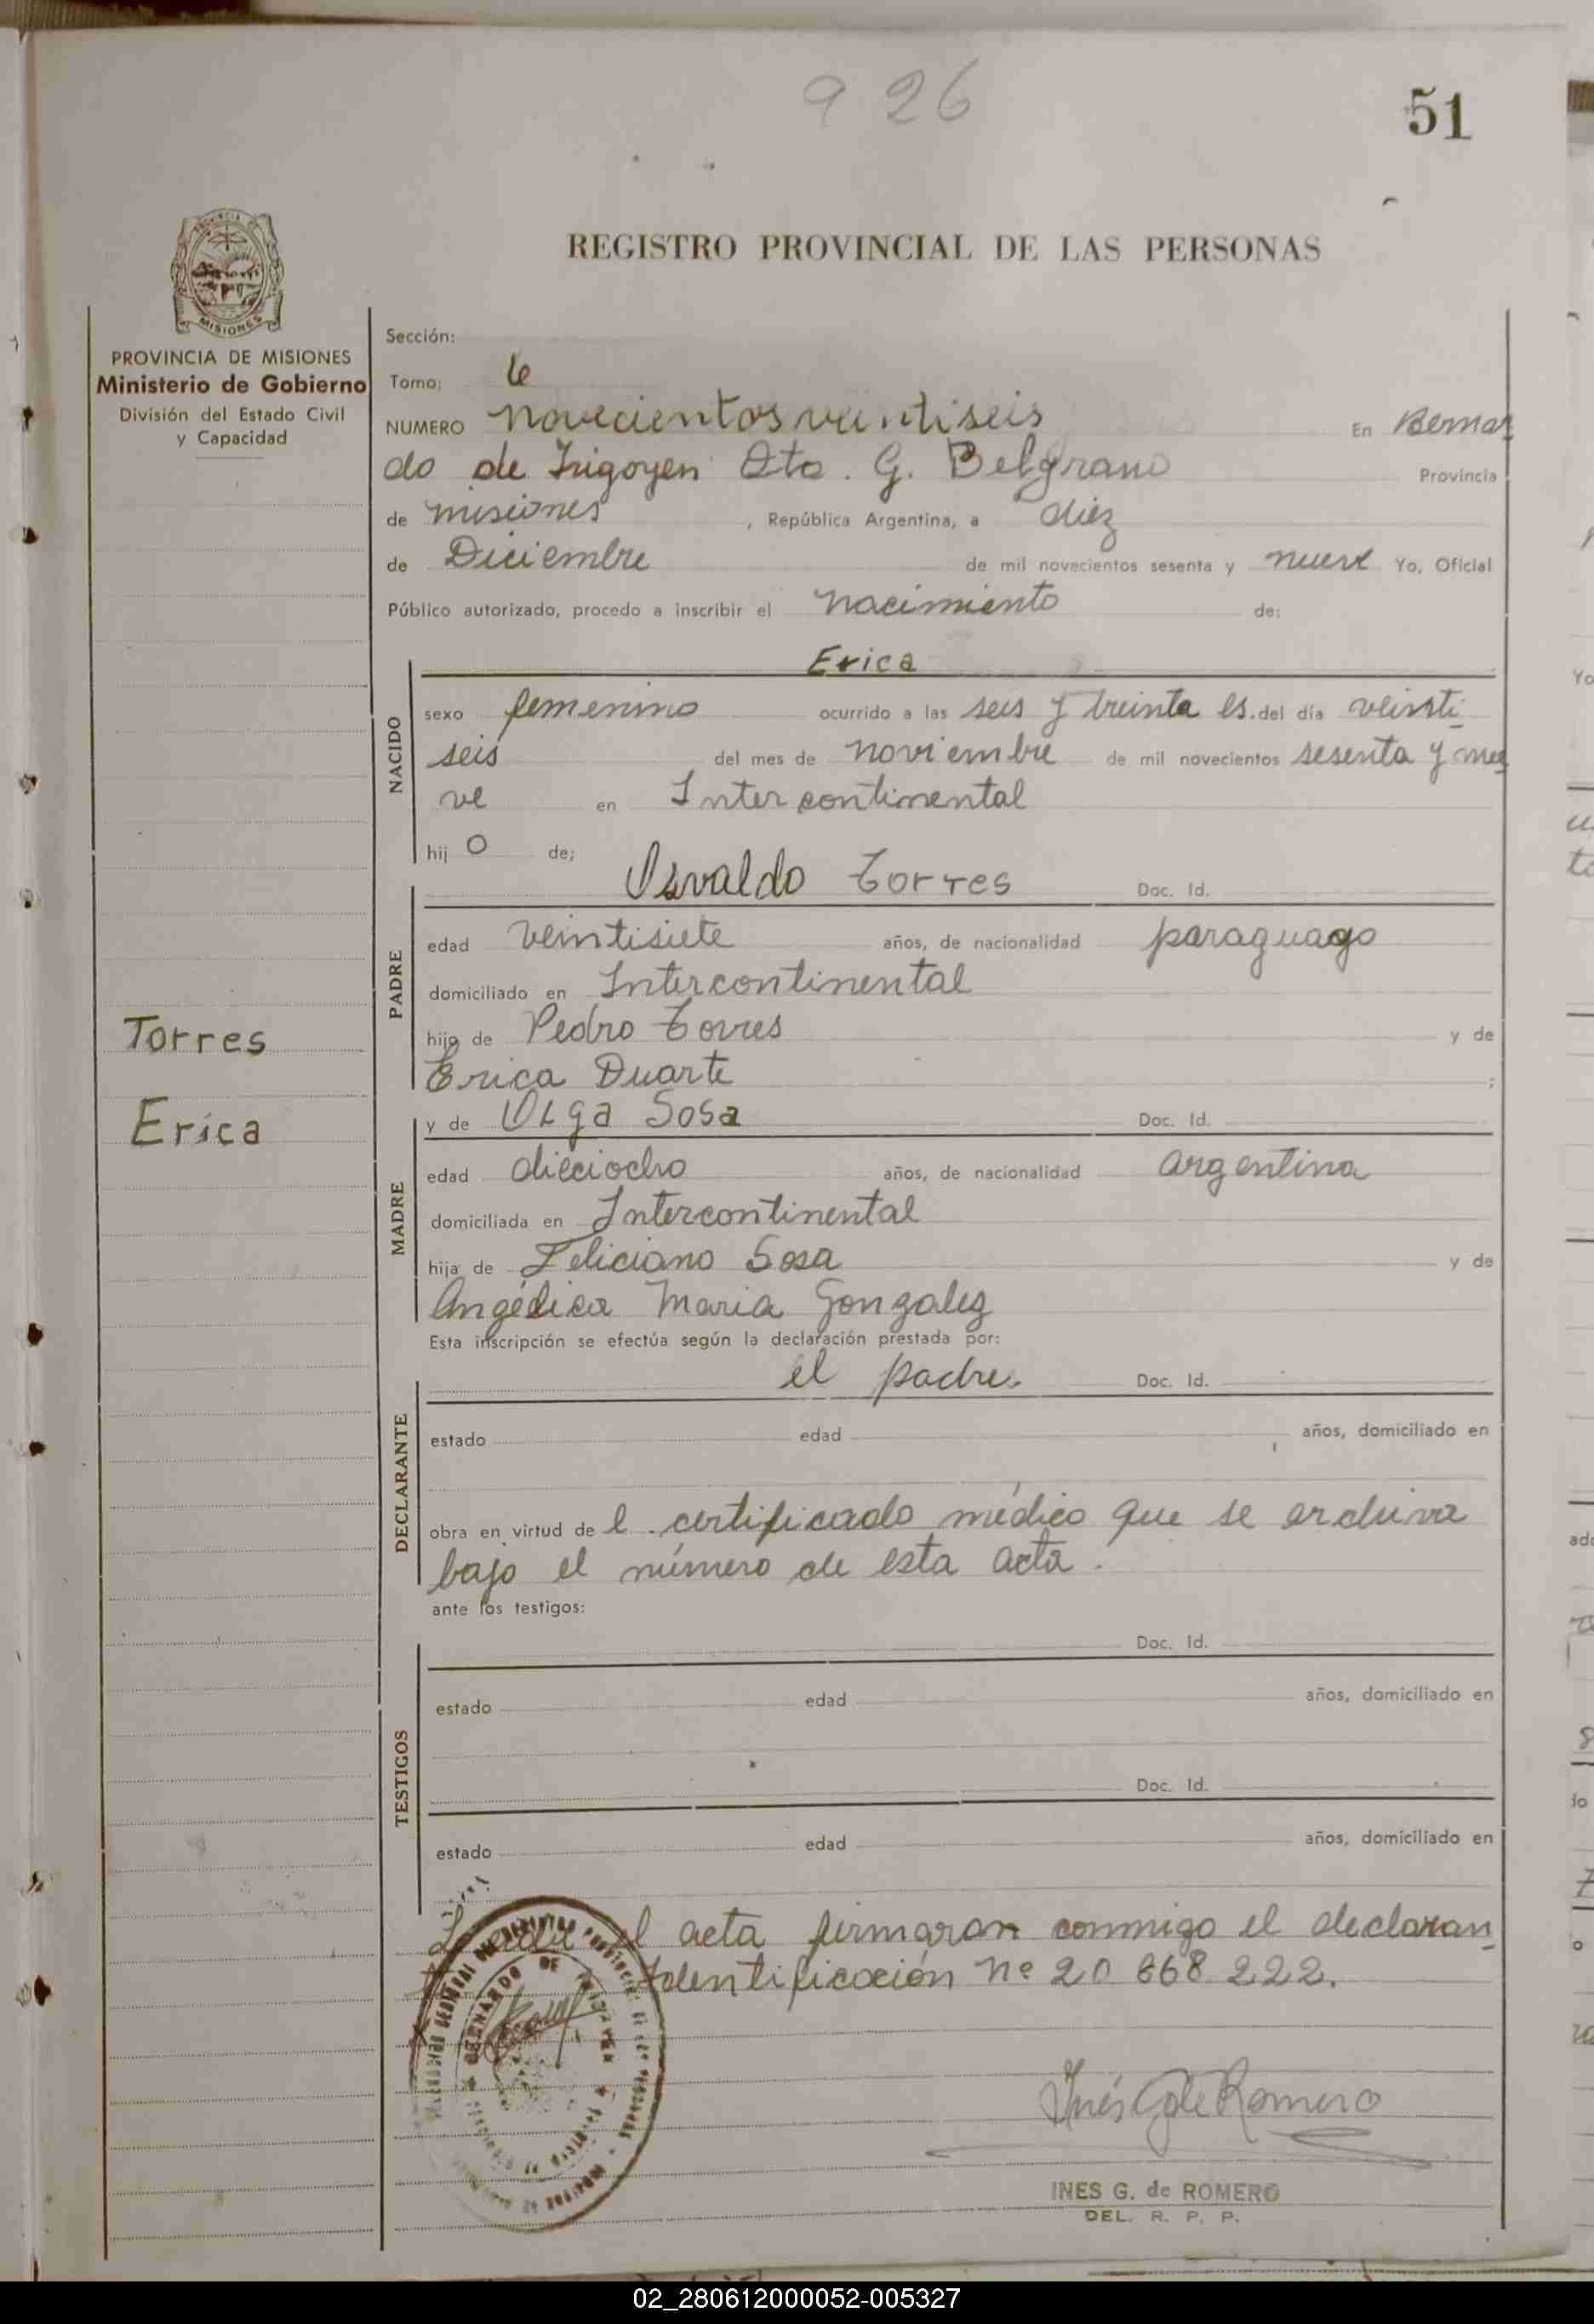 9 26
51
REGISTRO PROVINCIAL DE LAS PERSONAS
PROVINCIA DE MISIONES
Ministerio de Gobierno
División del Estado Civil
y Capacidad
Torres
Erica
Sección:
Tomo: 6
NUMERO novecientos veintiseis En Bernar
do de Irigoyen Dto. G. Belgrano Provincia
de misiones, República Argentina, a diez
de Diciembre de mil novecientos sesenta y nueve Yo, Oficial
Público autorizado, procedo a inscribir el nacimiento de:
NACIDO
Erica
sexo femenino ocurrido a las seis y treinta hs. del día veinti
seis del mes de noviembre de mil novecientos sesenta y nue
ve en Intercontinental
hij o de;
PADRE
Osvaldo Torres Doc. Id.
edad veintisiete años, de nacionalidad paraguayo
domiciliado en Intercontinental
hijo de Pedro Torres y de
Erica Duarte ;
MADRE
y de Olga Sosa Doc. Id.
edad dieciocho años, de nacionalidad argentina
domiciliada en Intercontinental
hija de Feliciano Sosa y de
Angélica Maria Gonzalez
Esta inscripción se efectúa según la declaración prestada por:
DECLARANTE
el padre. Doc. Id.
estado edad años, domiciliado en
obra en virtud de l certificado médico que se archiva
bajo el número de esta acta.
ante los testigos:
TESTIGOS
Doc. Id.
estado edad años, domiciliado en
Doc. Id.
estado edad años, domiciliado en
el acta firmaron conmigo el declaran
Identificación Nº 20 668 222.
BERNARDO DE IRIGOYEN
Inés G de Romero
INES G. de ROMERO
DEL. R. P. P.
02_280612000052-005327